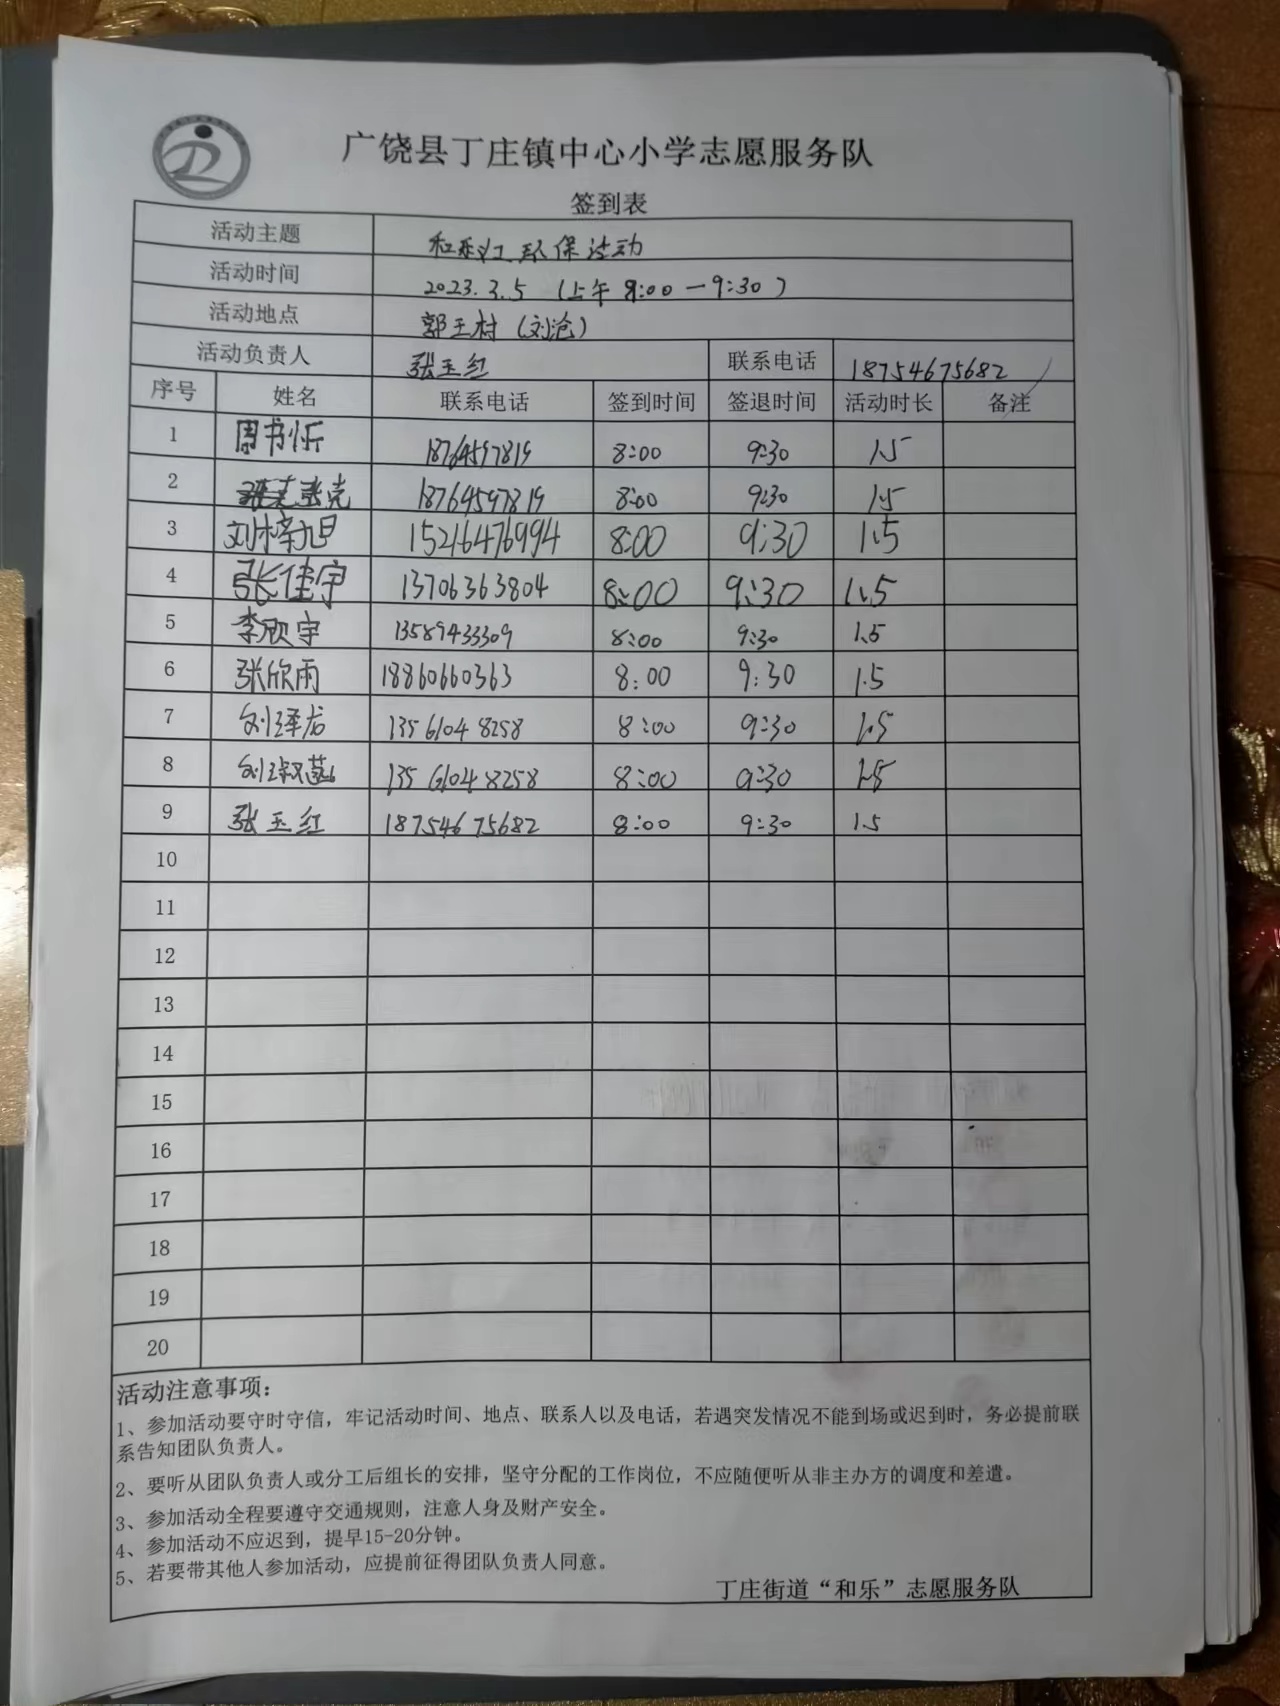 广饶县丁庄镇中心小学志愿服务队
签到表
活动主题 和乐义工环保活动
活动时间 2023.3.5 (上午 8:00-9:30)
活动地点 郭王村(刘沧)
活动负责人 张玉红 联系电话 18754675682
序号 姓名 联系电话 签到时间 签退时间 活动时长 备注
1 周书乐 18764597819 8:00 9:30 1.5
2 张克 18764597819 8:00 9:30 1.5
3 刘梓旭 15216476994 8:00 9:30 1.5
4 张佳宇 13706363804 8:00 9:30 1.5
5 李欣宇 13589433309 8:00 9:30 1.5
6 张欣雨 18860660363 8:00 9:30 1.5
7 刘泽龙 13561048258 8:00 9:30 1.5
8 13561048258 8:00 9:30 1.5
9 张玉红 18754675682 8:00 9:30 1.5
10
11
12
13
14
15
16
17
18
19
20
活动注意事项:
1、参加活动要守时守信,牢记活动时间、地点、联系人以及电话,若遇突发情况不能到场或迟到时,务必提前联
系告知团队负责人。
2、要听从团队负责人或分工后组长的安排,坚守分配的工作岗位,不应随便听从非主办方的调度和差遣。
3、参加活动全程要遵守交通规则,注意人身及财产安全。
4、参加活动不应迟到,提早15-20分钟。
5、若要带其他人参加活动,应提前征得团队负责人同意。
丁庄街道“和乐”志愿服务队